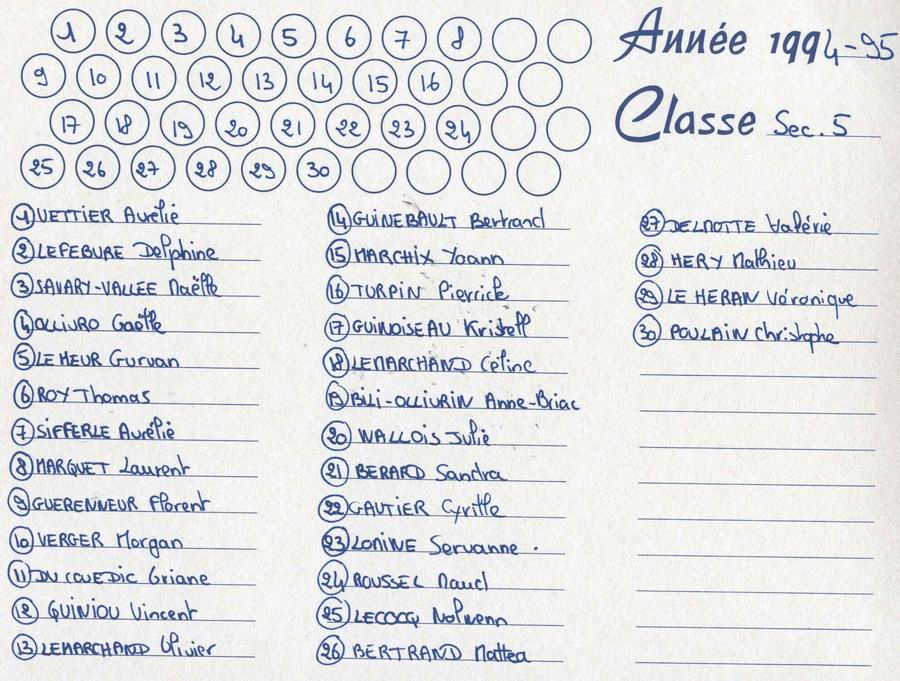 1 2 3 4 5 6 7 8
Année 1994-95
9 10 11 12 13 14 15 16
17 18 19 20 21 22 23 24
Classe Sec. 5
25 26 27 28 29 30
1 VETTIER Aurélie
2 LEFEBURE Delphine
3 SAVARY-VALLEE Maëlle
4 OLLIVRO Gaëlle
5 LE MEUR Gurvan
6 ROY Thomas
7 SIFFERLE Aurélie
8 MARQUET Laurent
9 GUERENNEUR Florent
10 VERGER Morgan
11 DU COUEDIC Oriane
12 QUINIOU Vincent
13 LEMARCHAND Olivier
14 GUINEBAULT Bertrand
15 MARCHIX Yoann
16 TURPIN Pierrick
17 GUINOISEAU Kristell
18 LEMARCHAND Céline
19 BILI-OLLIURIN Anne-Briac
20 WALLOIS Julie
21 BERARD Sandra
22 GAUTIER Cyrille
23 LOMINE Servanne.
24 ROUSSEL Maud
25 LECOCQ Nolwenn
26 BERTRAND Mattea
27 DELMOTTE Valérie
28 HERY Mathieu
29 LE HERAN Véronique
30 POULAIN Christophe